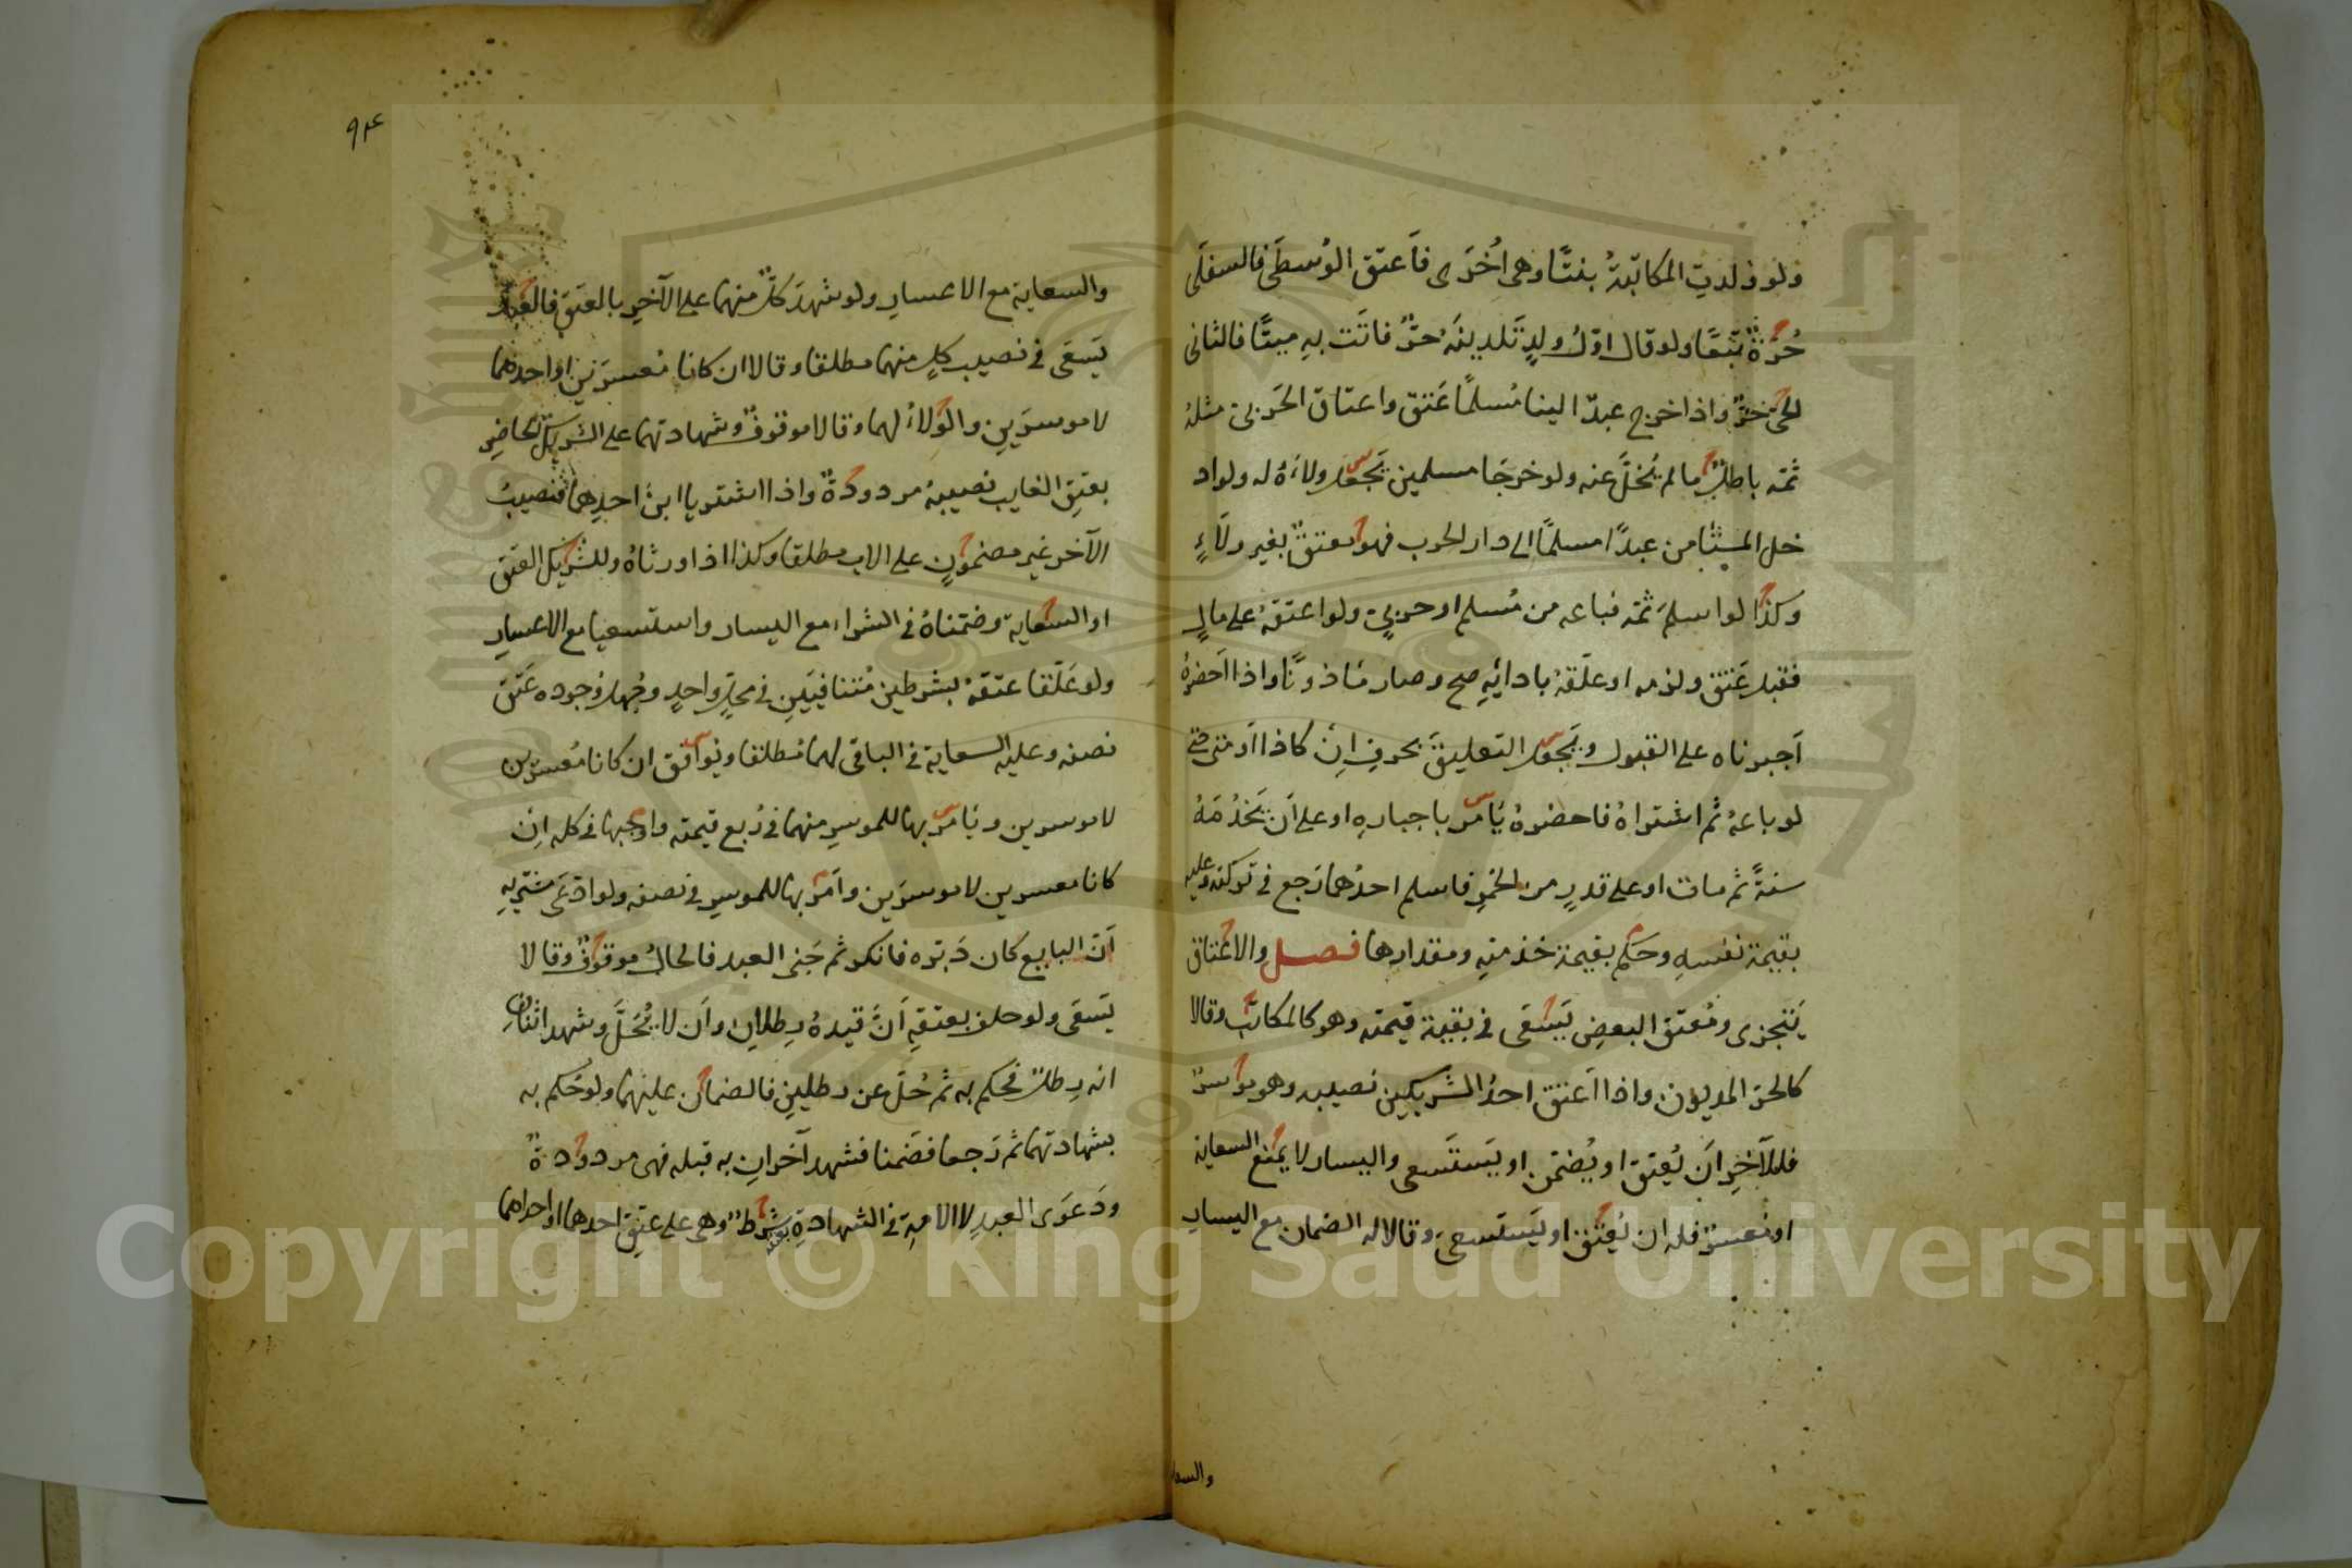 ولو ولدت المكاتبةُ بنتًا وهى اُخرَى فاَعتق الوُسطَى فالسفلَى
حُرّةٌ تبَعًا ولو قال اوّلُ ولدٍ تَلدينَهُ حرٌّ فاتَت بهِ ميتًا فالثانى
الحىّ حرٌّ واذا اخرج عبدٌ الينا مُسلمًا عَتق واعتاق الحَربىّ مثلهُ
ثمّه باطلٌ ما لم يُخلَّ عنه ولو خرجَا مسلمين يَجعَل ولاءَهُ له ولو اد
خل المستامن عبدًا مسلمًا الى دار الحرب فهو معتقٌ بغير ولآءٍ
وكذا لو اسلمَ ثمّه فباعه من مُسلم او حربىّ ولو اعتقهُ على مالٍ
فقبل عَتق ولزمه او علّقهُ بادائهِ صح وصار ماذونًا واذا اَحضرهُ
اَجبرناه على القبول ويَجعل التعليقَ بحرفِ اِنْ كاذا او متى حتى
لو باعهُ ثم اشتراهُ فاحضرهُ يَامر باجبارهِ او على اَن يَخدُمَهُ
سنةً ثم مات او على قدرٍ من الخمرِ فاسلم احدُهما رَجع فى تركته وعليه
بقيمة نفسهِ وحَكم بقيمة خدمتهِ ومقدارها فصل والاعتاق
يَتجزى ومُعتق البعضِ يَسعَى فى بقية قيمته وهو كالمكاتَب وقالا
كالحرّ المديون واذا اَعتق احدُ الشريكين نصيبه وهو موسرٌ
فللآخرِ اَن يُعتق او يُضمّن او يَستَسعى واليسار لا يمنع السعاية
او مُعسرٌ فله ان يُعتق او يَستسعى وقالا له الضمان مع اليسارِ
والسعا
٩٣٤
والسعاية مع الاعسارِ ولو شهدَ كلٌّ منهما على الآخرِ بالعتقِ فالعبدُ
يَسعَى فى نصيب كلٍ منهما مطلقا وقالا ان كانا مُعسرَينِ او احدهما
لا موسرَينِ والوَلاءُ لهما وقالا موقوفٌ وشهادتهما على الشريكِ الحاضِر
بعتقِ الغايب نصيبهُ مردودةٌ واذا اشتريا ابنَ احدِهما فنصيبُ
الآخر غير مضمونٍ على الاب مطلقا وكذا اذا ورثاهُ وللشريك العتق
او السعاية وضمّناهُ فى الشراء مع اليسار واستسعيا مع الاعسارِ
ولو عَلّقا عتقهُ بشرطين مُتنافيَينِ فى محلٍ واحدٍ وجُهل وُجوده عَتق
نصفه وعليه السعاية فى الباقى لهما مُطلقا ويُوافق ان كانا مُعسرَين
لا موسرين ويَامر بها للموسرِ منهما فى رُبع قيمته واوجبها فى كله اِن
كانا معسرين لا موسرَين واَمَر بها للموسرِ فى نصفه ولو ادّعَى مشتريهِ
اَنّ البايع كان دَبّره فانكر ثم جَنى العبد فالحالُ موقوفٌ وقالا
يَسعَى ولو حلف بعتقهِ اَنَّ قيدهُ رِطلانِ واَن لا يُحَلَّ وشهد اثنانِ
انه رِطلٌ فحكم به ثم حُلّ عن رطلينِ فالضمان عليهما ولو حُكم به
بشهادتهما ثم رَجعا فضَمنا فشهد آخرانِ به قبله فهى مردودةٌ
ودَعوَى العبدِ لا الامةِ فى الشهادةِ بعتقه شرطٌ وهى على عتقِ احدهما او احراهما
Copyright © King Saud University